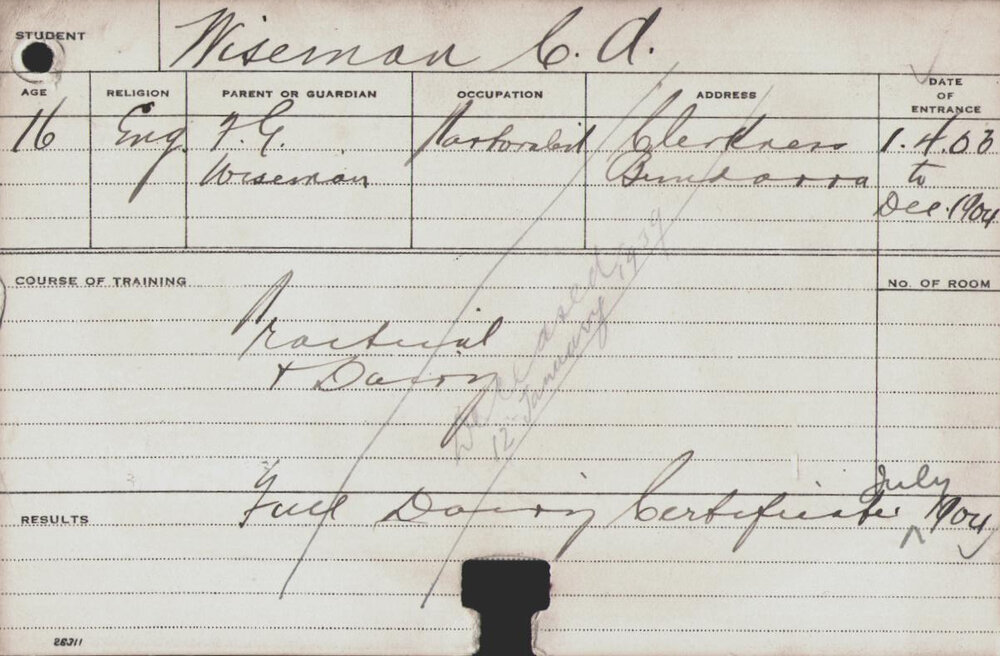 STUDENT
Wiseman C. A.
AGE
RELIGION
PARENT OR GUARDIAN
OCCUPATION
ADDRESS
DATE
OF
ENTRANCE
16
Eng.
F. G.
Wiseman
Pastoralist
Clerkness
Bundarra
1.4.03
to
Dec. 1904
COURSE OF TRAINING
NO. OF ROOM
Practical
+ Dairy
Deceased
12 January 1939
RESULTS
Full Dairy Certificate July 1904
28311